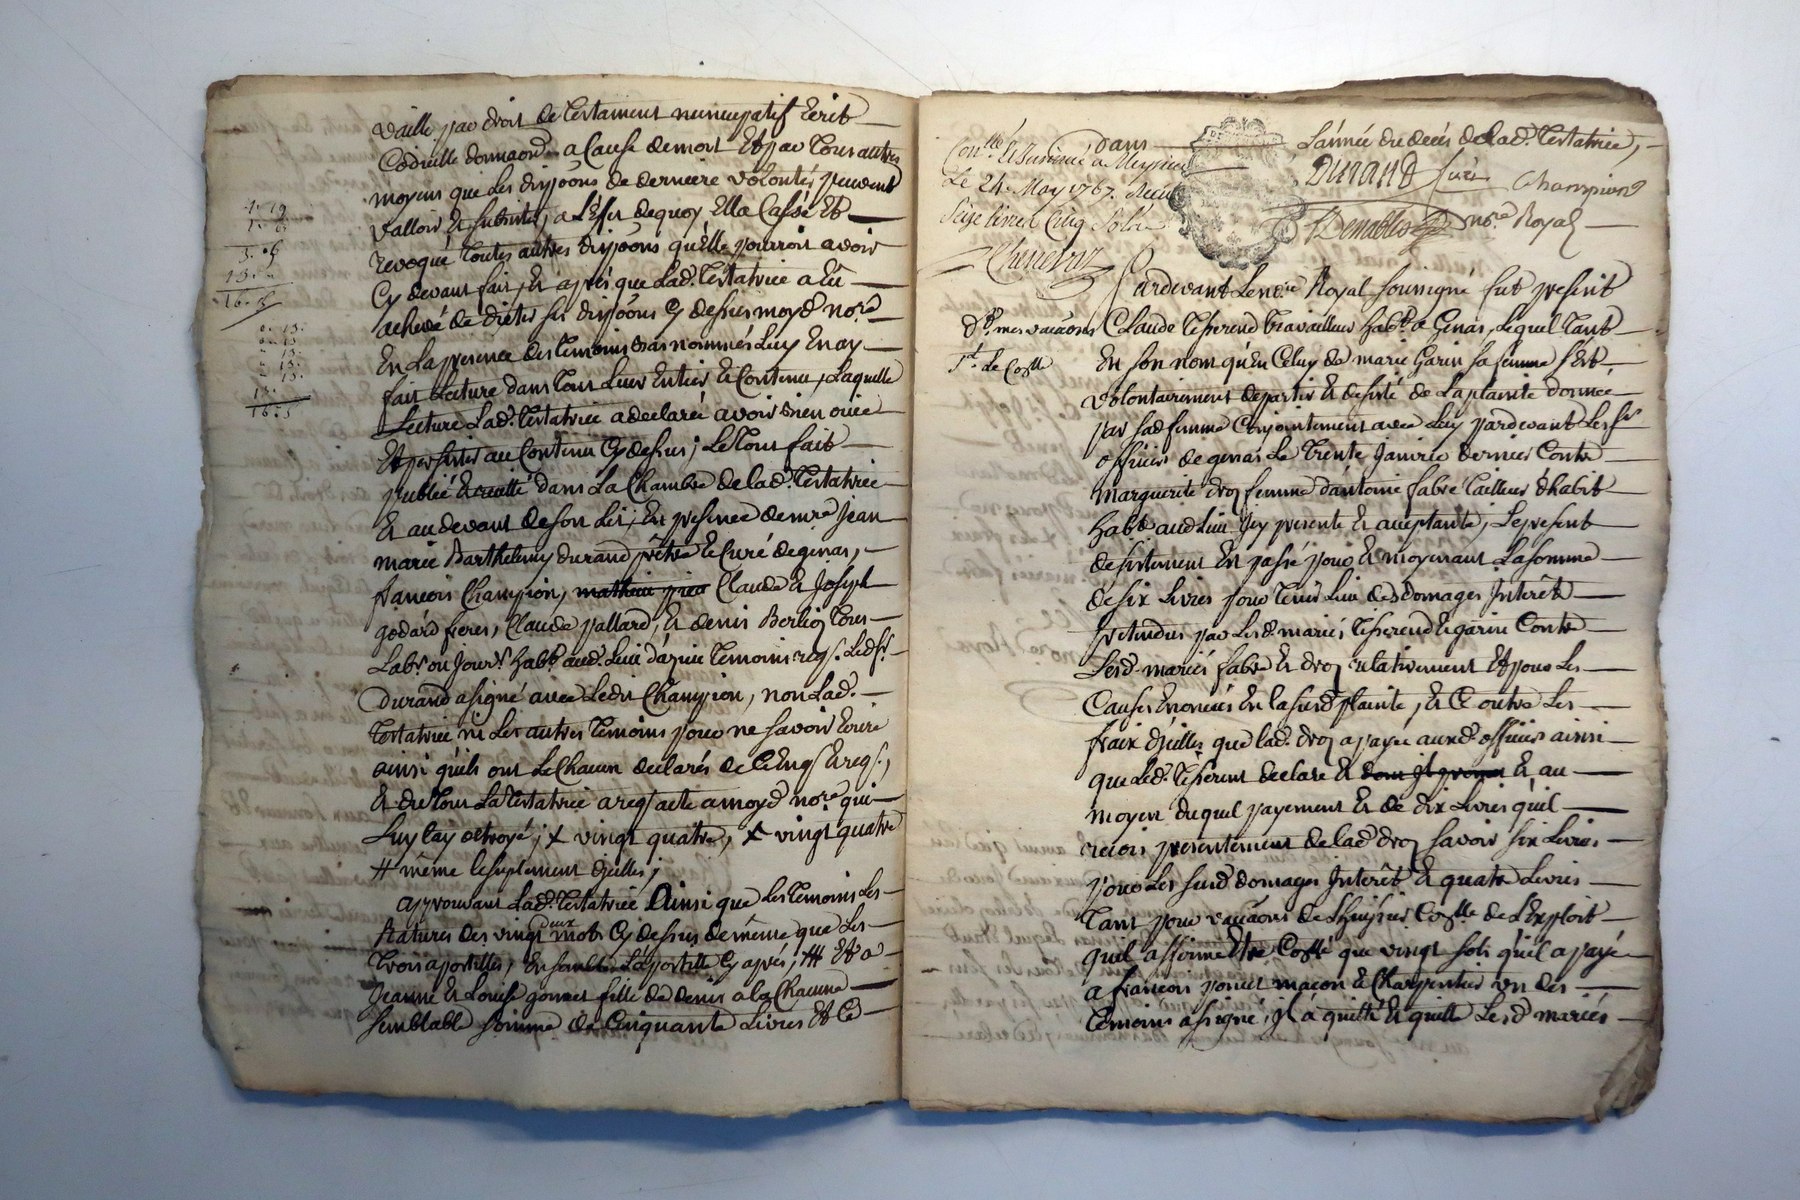 vaille par droit de testament nuncupatif Ecrit
Codicille donnaon a Cause de mort Et par tous autres
moyens que les dispoons de derniere volontés peuvent
valloir Et subsister, a l'effet de quoy Ella Cassé Et
revoqué toutes autres dispoons qu'Elle pourroit avoir
Cy devant fait, Et aprés que lad. Testatrice a Eu
achevé de dicter ses dispoons Cy dessus moyd nore
En la presence des temoins bas nommés luy En ay
fait lecture dans tout leur Entier & Contenu, laquelle
Lecture lad. Testatrice a declarée avoir bien ouïe
Et persister au Contenu Cy dessus; le tout fait
publié & recitté dans la Chambre de lad. Testatrice
Et au devant de son lit, En presence de mre Jean
marie Barthelemy durand prêtre & Curé de genas,
francois Champion, Claude & Joseph
godard freres, Claude pallard, & denis Berlioz tous
Labrs ou Jourrs habts aud. lieu de genas temoins reqs. Ledsr.
Durand a signé avec ledit Champion, non lad.
Testatrice ni les autres temoins pour ne savoir Ecrire
ainsi qu'ils ont le Chacun declarés de Ce Enqs & reqs.,
Et du tout la Testatrice a reqs acte a moyd nore qui
Luy l'ay octroyé; x vingt quatre, x vingt quatre
# même le suplement d'icelles;
approuvant lad. Testatrice Ainsi que les temoins les
Ratures des vingt deux mots Cy dessus de même que les
trois apostilles, Ensemble l'apostille Cy aprés, ## Et a
Jeanne & Louise gonnet fille de denis a la Chacune
semblable somme de Cinquante Livres Et Ce
1. 19
3. 6
13.
16. 5
13.
13.
13.
13.
16. 5
dans l'année du decés de lad. Testatrice,
DURAND Curé Champion
Denables nore Royal
Conlle & Insinué a Meyzieu
Le 24. May 1767. Reçu
Seize livres Cinq Sols
Chenevaz
Pardevant le nore Royal soussigné fut present
Claude Tisserend travailleur habt a Genas, lequel tant
En son nom qu'En Celuy de marie Garin sa femme s'Est
volontairement departis & desisté de la plainte donnée
par sad femme Conjointement avec luy pardevant les srs
officiers de genas le trente Janvier dernier Contre
marguerite droz femme d'antoine fabre tailleur d'habit
habt aud lieu Icy presente & acceptante, le present
desistement En passé pour & moyenant la somme
de six livres pour tenir lieu des domages Interêt
pretendus par lesd. mariés Tisserend & garin Contre
lesd. mariés fabre & droz relativement Et pour les
Causes Enoncées En la susd plainte, & Ce outre les
fraix d'icelles que lad. droz a payée auxd. officiers ainsi
que led. Tisserent declare & & au
moyen duquel payement & de dix livres qu'il
reçois presentement de lad droz savoir six livres
pour les susd domages Interêt & quatre livres
tant pour vacaons de l'huissier Coplle de l'Exploit
qu'il affirme Etre Costé que vingt sols qu'il a payé
a francois ponet maçon & Charpentier un des
temoins assigné, il a quitté & quitte lesd mariés
dt. mes vacaons